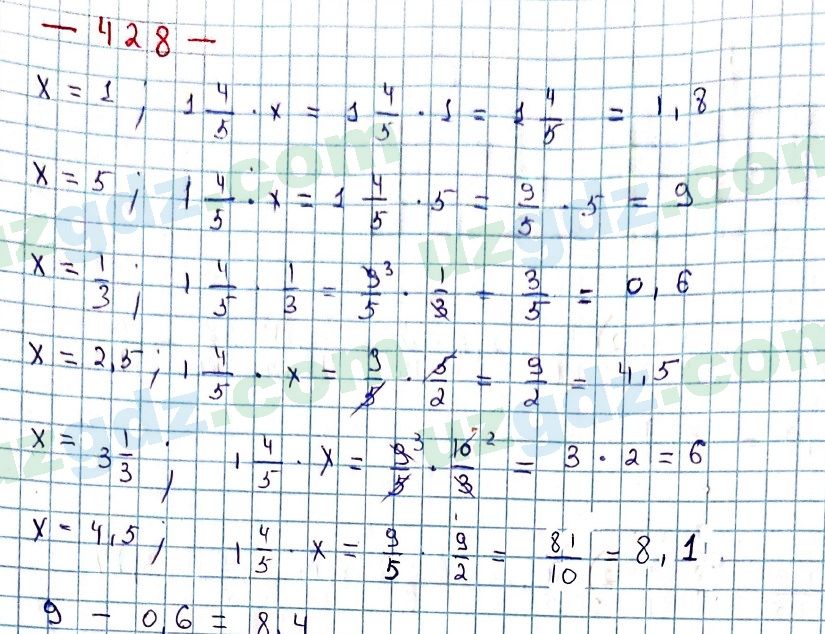 — 428 —
x = 1 ; 1 4/5 · x = 1 4/5 · 1 = 1 4/5 = 1,8
x = 5 ; 1 4/5 · x = 1 4/5 · 5 = 9/5 · 5 = 9
x = 1/3 ; 1 4/5 · 1/3 = 9 3/5 · 1/3 = 3/5 = 0,6
x = 2,5 ; 1 4/5 · x = 9/5 · 5/2 = 9/2 = 4,5
x = 3 1/3 ; 1 4/5 · x = 9 3/5 · 10 2/3 = 3 · 2 = 6
x = 4,5 ; 1 4/5 · x = 9/5 · 9/2 = 81/10 = 8,1
9 – 0,6 = 8,4
uzgdz.com
uzgdz.com
uzgdz.com
uzgdz.com